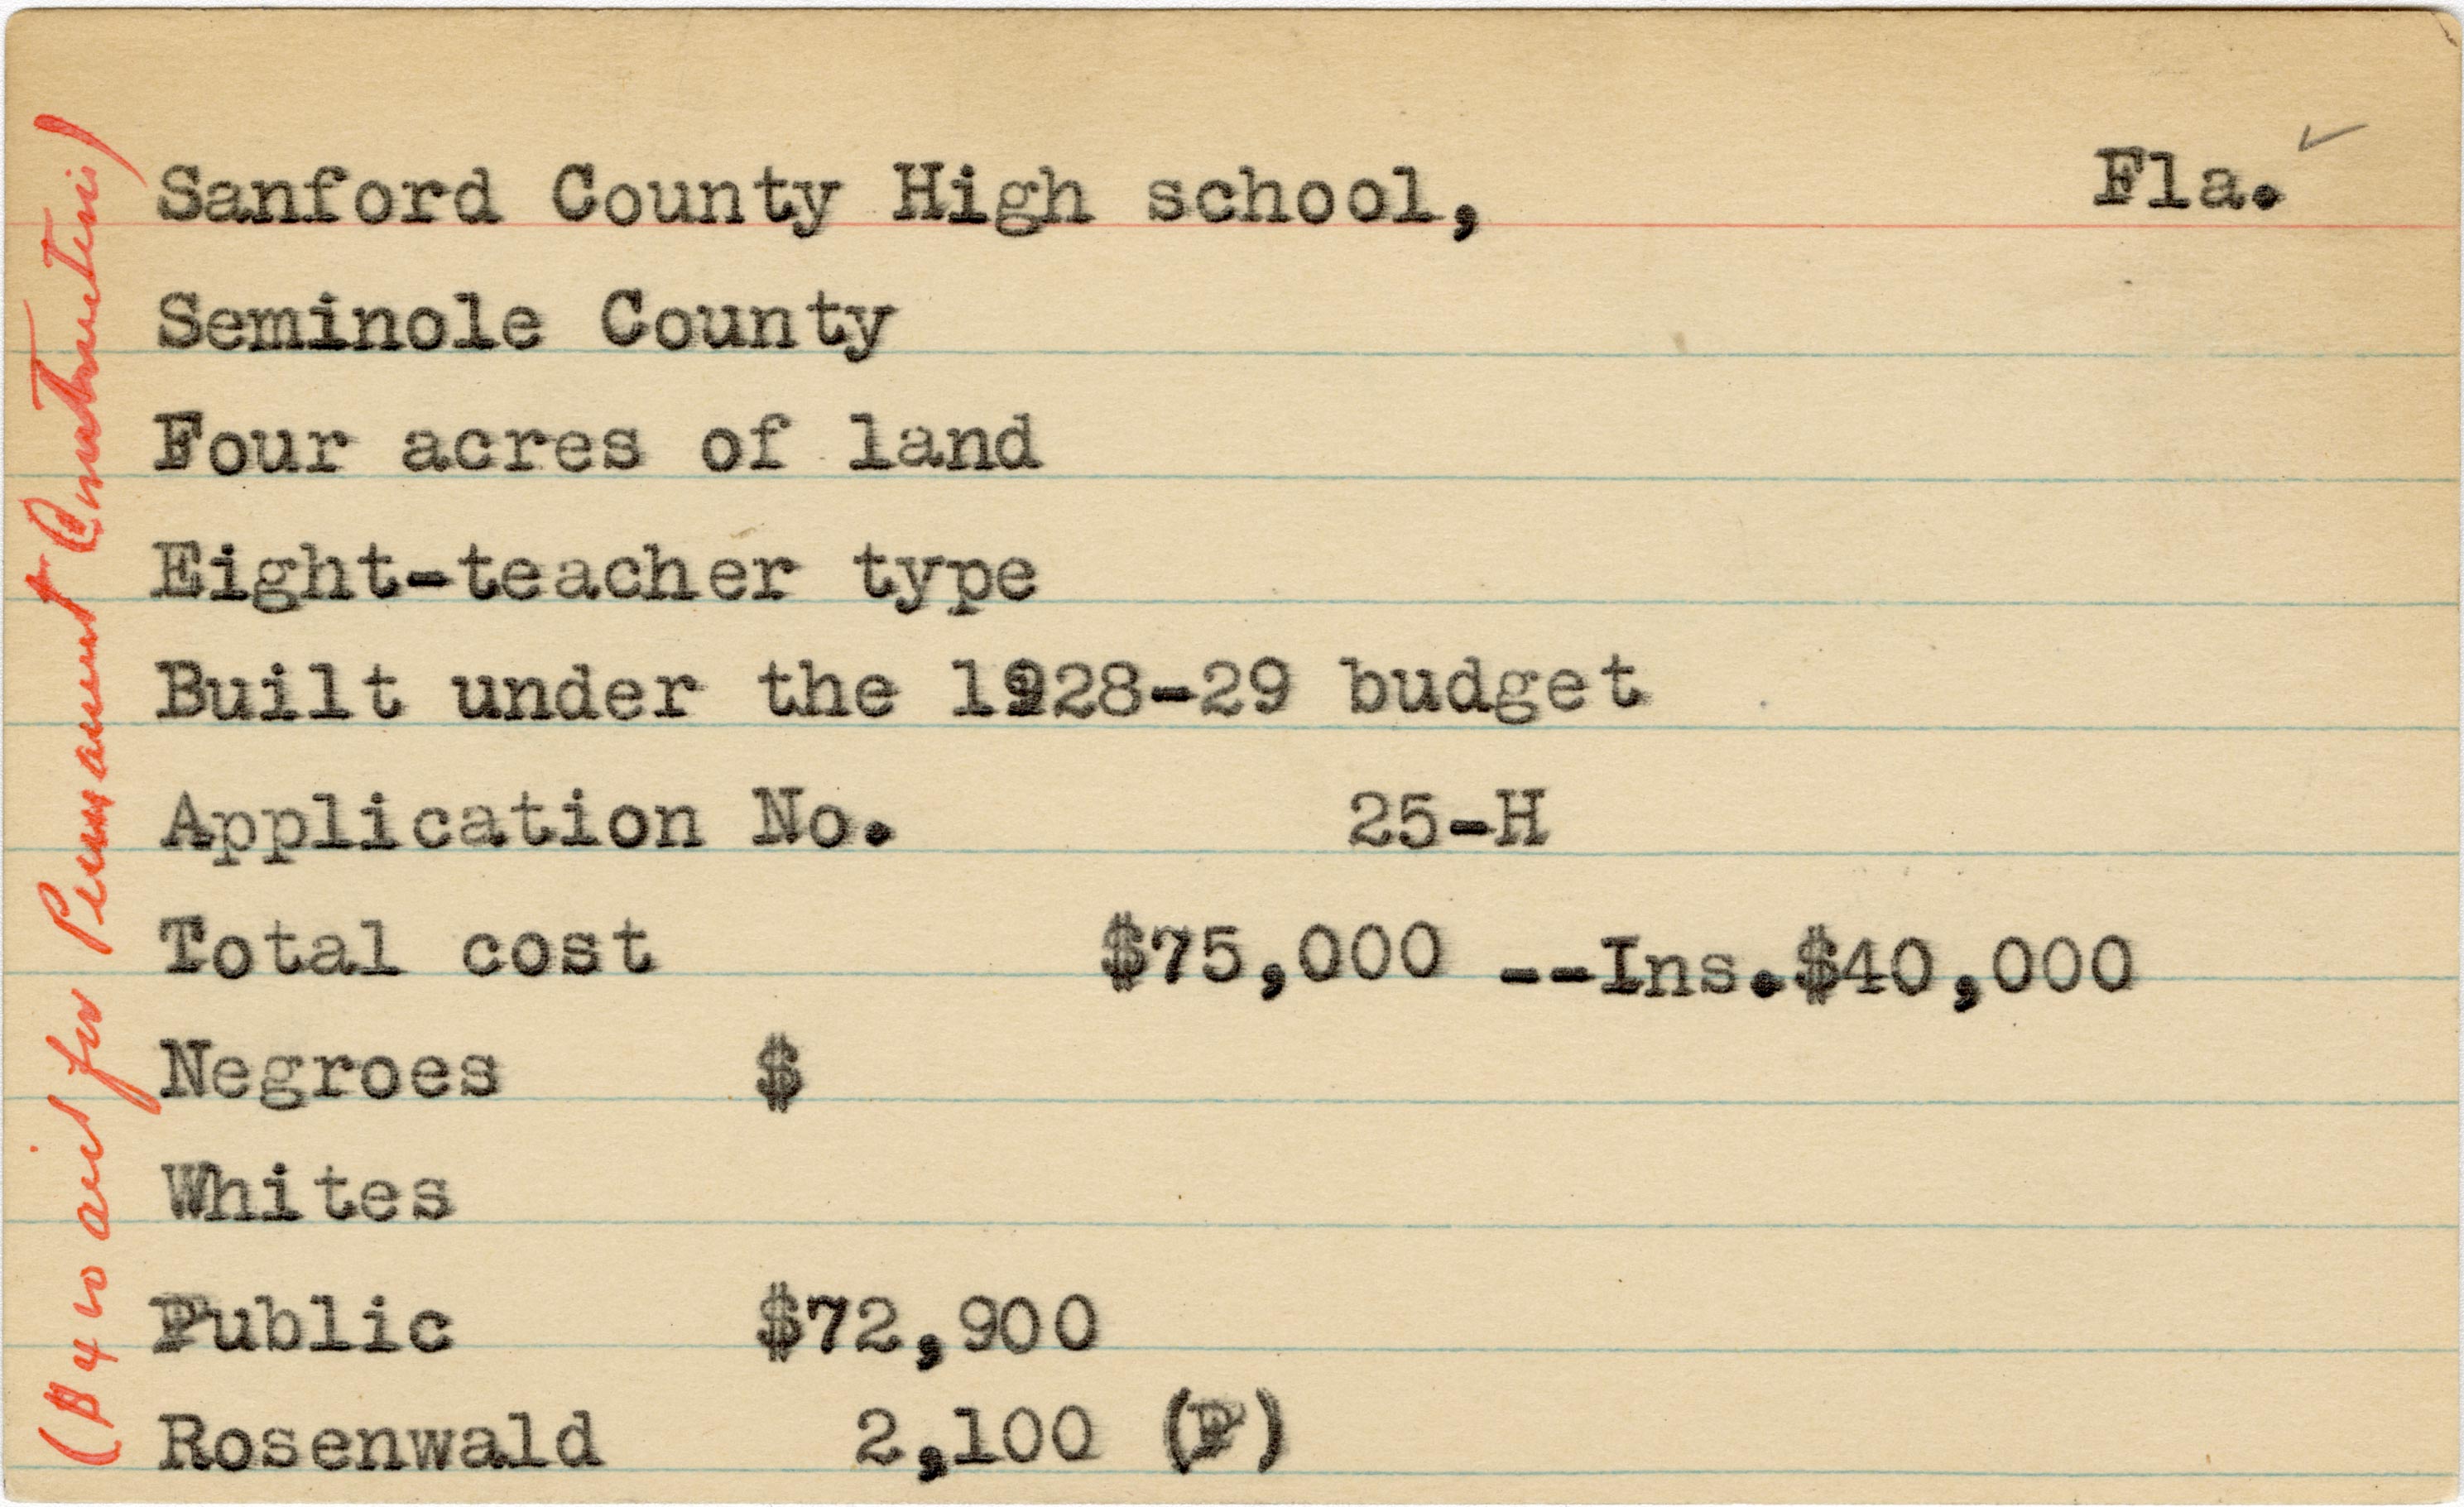 Sanford County High school, Fla. ✓
Seminole County
Four acres of land
Eight-teacher type
Built under the 1928-29 budget
Application No. 25-H
Total cost $75,000 --Ins.$40,000
Negroes $
Whites
Public $72,900
Rosenwald 2,100 (P)
($400 aid for Permanent Construction)